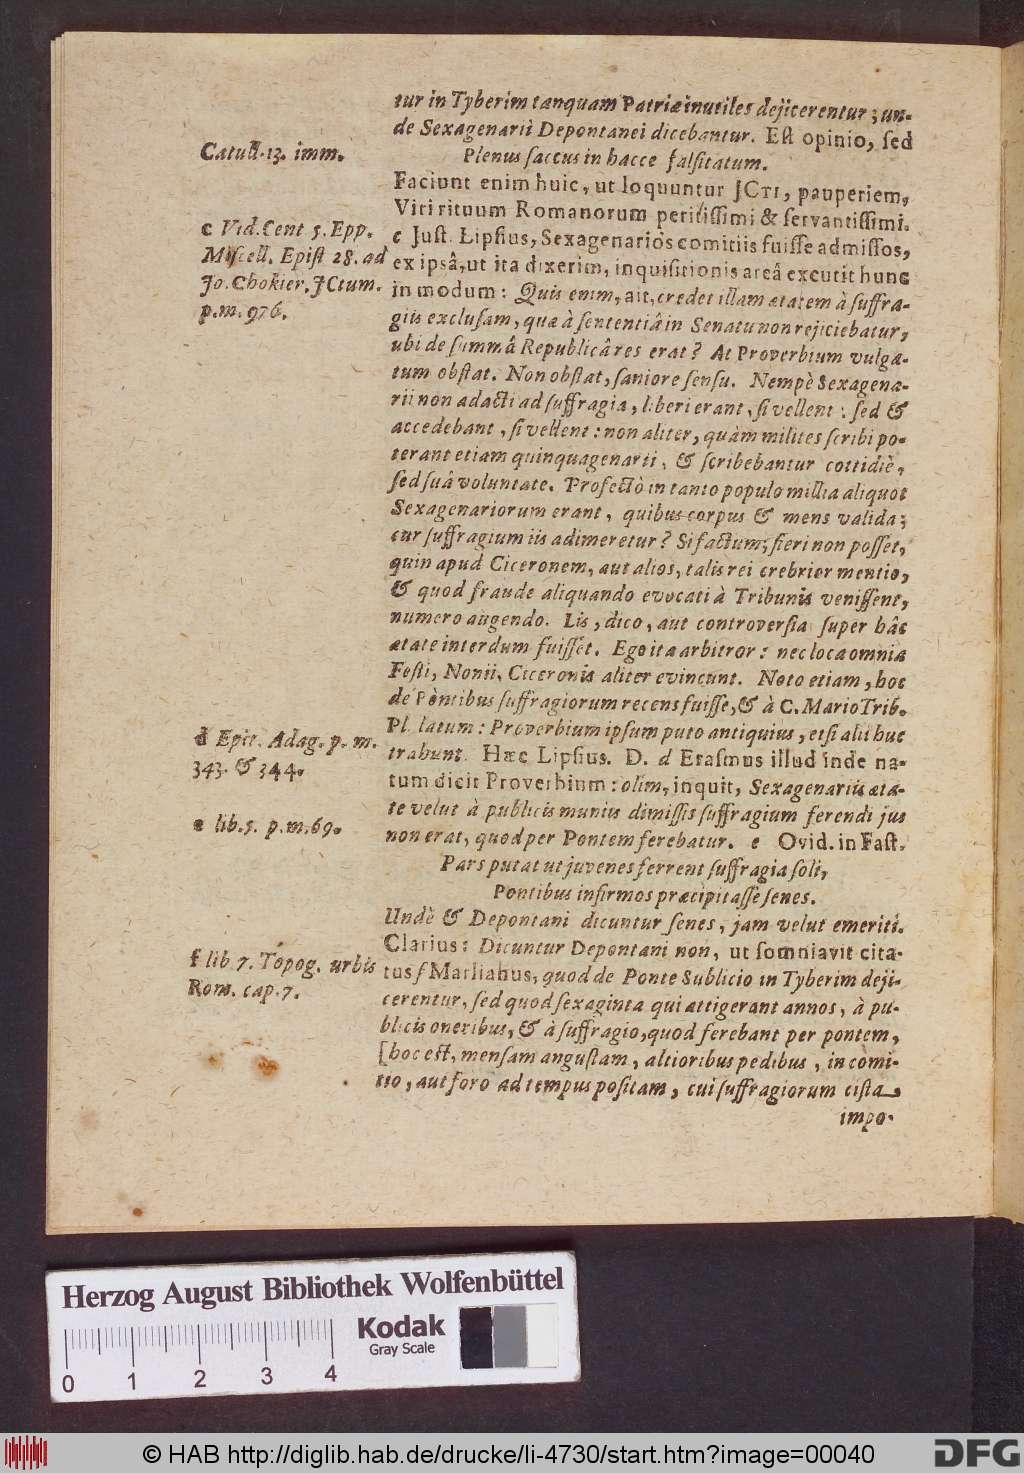 tur in Tyberim tanquam Patriæ inutiles dejicerentur; un-
de Sexagenarii Depontanei dicebantur. Est opinio, sed
Catull. 13. imm.
Plenus saccus in hacce falsitatum.
Faciunt enim huic, ut loquuntur JCTI, pauperiem,
Viri rituum Romanorum peritissimi & servantissimi.
c Vid. Cent 5. Epp.
Miscell. Epist 28. ad
Jo. Chokier. JCtum.
p. m. 976.
c Just. Lipsius, Sexagenariòs comitiis fuisse admissos,
ex ipsâ, ut ita dixerim, inquisitionis areâ excutit hunc
in modum: Quis enim, ait, credet illam ætatem à suffra-
giis exclusam, quæ à sententiâ in Senatu non rejiciebatur,
ubi de summâ Republicâ res erat? At Proverbium vulga-
tum obstat. Non obstat, saniore sensu. Nempè Sexagena-
rii non adacti ad suffragia, liberi erant, si vellent: sed &
accedebant, si vellent: non aliter, quàm milites scribi po-
terant etiam quinquagenarii, & scribebantur cottidiè,
sed suâ voluntate. Profectò in tanto populo millia aliquot
Sexagenariorum erant, quibus corpus & mens valida;
cur suffragium iis adimeretur? Si factum, fieri non posset,
quin apud Ciceronem, aut alios, talis rei crebrior mentio,
& quod fraude aliquando evocati à Tribunis venissent,
numero augendo. Lis, dico, aut controversia super hâc
ætate interdum fuisset. Ego ita arbitror: nec loca omnia
Festi, Nonii, Ciceronis aliter evincunt. Noto etiam, hoc
de Pontibus suffragiorum recens fuisse, & à C. Mario Trib.
Pl. latum: Proverbium ipsum puto antiquius, etsi alii huc
d Epit. Adag. p. m.
343. & 344.
trahunt. Hæc Lipsius. D. d Erasmus illud inde na-
tum dicit Proverbium: olim, inquit, Sexagenariis æta-
te velut à publicis muniis dimissis suffragium ferendi jus
e lib. 5. p. m. 69.
non erat, quod per Pontem ferebatur. e Ovid. in Fast.
Pars putat ut juvenes ferrent suffragia soli,
Pontibus infirmos præcipitasse senes.
Undè & Depontani dicuntur senes, jam velut emeriti.
Clarius: Dicuntur Depontani non, ut somniavit cita-
f lib 7. Topog. urbis
Rom. cap. 7.
tus f Marlianus, quod de Ponte Sublicio in Tyberim deji-
cerentur, sed quod sexaginta qui attigerant annos, à pu-
blicis oneribus, & à suffragio, quod ferebant per pontem,
[hoc est, mensam angustam, altioribus pedibus, in comi-
tio, aut foro ad tempus positam, cui suffragiorum cista
impo-
Herzog August Bibliothek Wolfenbüttel
Kodak
Gray Scale
0 1 2 3 4
© HAB http://diglib.hab.de/drucke/li-4730/start.htm?image=00040
DFG